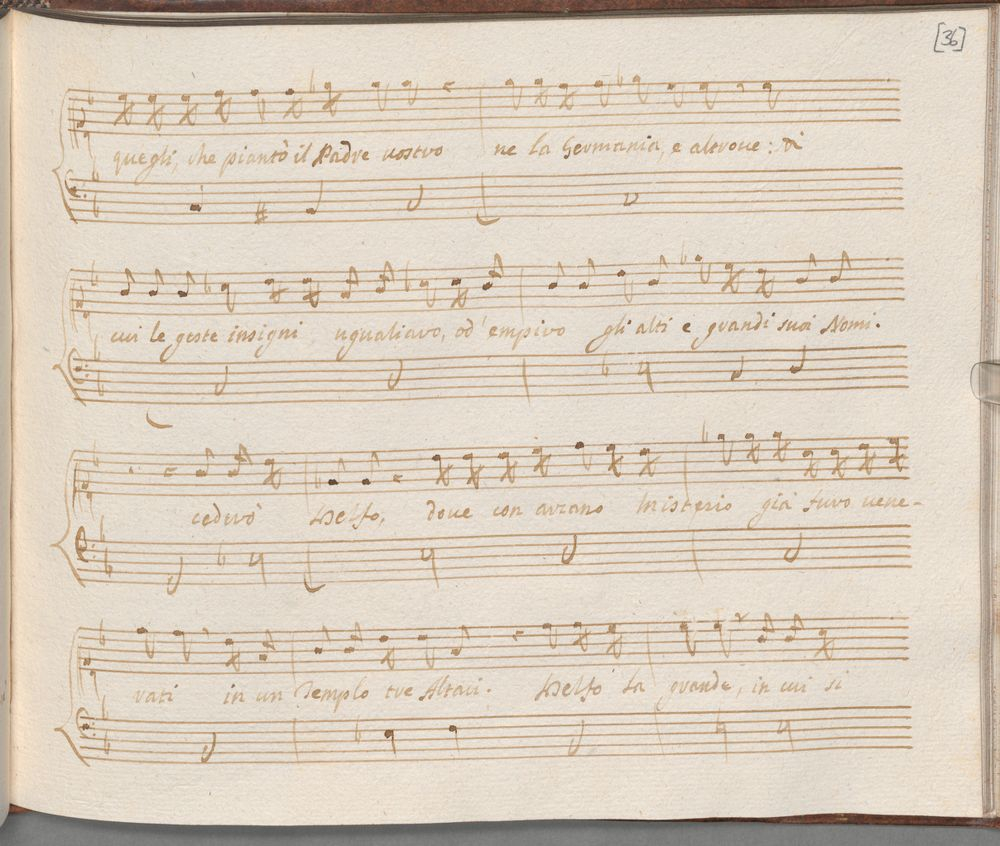 [36]
quegli, che piantò il Padre vostro ne la Germania, e altrove: di
cui le geste insigni ugualiavo, od' empivo gli alti e grandi suoi Nomi.
cederò Delfo, dove con arcano Misterio già furo vene-
rati in un Templo tre Altari. Delfo la grande, in cui si